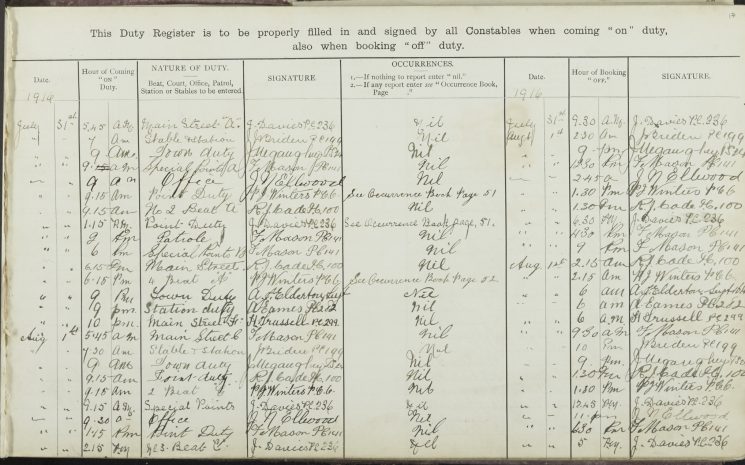 17
This Duty Register is to be properly filled in and signed by all Constables when coming "on" duty,
also when booking "off" duty.
Date. Hour of Coming "ON" Duty. NATURE OF DUTY. Beat, Court, Office, Patrol, Station or Stables to be entered. SIGNATURE OCCURRENCES. 1.—If nothing to report enter "nil." 2.—If any report enter see "Occurrence Book, Page ." Date. Hour of Booking "OFF." SIGNATURE.
1916 1916
July 31st 5.45 A.M. Main Street A. J. Davies P.C. 236 Nil July 31st 9.30 A.M. J. Davies P.C. 236
" " 7 Am Stable & station J. Briden P C 199 Nil Augt 1st 2.30 am J. Briden P C 199
" " 9 Am Town duty Nil " " 9 pm
" " 9. am Special points A F. Mason P6141 Nil " " F. Mason P6141
" " 9 a m Office J. N. Ellwood Nil " " J. N. Ellwood
" " 9.15 Am Point Duty W J Winters P 66 See Occurrence Book Page 51 " " 1.30 Pm W J Winters P 66
" " 9.15 am No 2 Beat A R J. Cade P6.100 Nil " " 1.30 R J. Cade P6.100
" " 1.15 Point Duty J. Davies P.C. 236 See Occurrence Book page, 51. " " 6.30 J. Davies P.C. 236
" " 2 Pm Patrole F. Mason P6141 Nil " " 4.30 Pm F. Mason P6141
" " 6 Pm Special Points B F. Mason P6141 Nil " " 9 Pm F. Mason P6141
" " 6.15 Pm Main Street R J. Cade P6,100 Nil Aug 1st 2.15 am R J. Cade P6,100
" " 6.15 Pm 4 Beat W J Winters P 66 See Occurrence Book Page 52 " " 2.15 Am W J Winters P 66
" " 9 Pm Town Duty A. J. Elderton Supt Nil " " 6 am A. J. Elderton Supt
" " 9 pm. Station duty A Eames P6212 Nil " " 6 am A Eames P6212
" " 10 pm. Main Street H Trussell P C 299 Nil " " 6 A.M H Trussell P C 299
Aug 1st 5.45 am Main Street C F. Mason P6141 Nil " " 9.30 am F. Mason P6141
" " 7.30 am Stable & station J. Briden P C 199 Nil " " 10 Pm J. Briden P C 199
" " 9 am Town duty Nil " " 9 Pm
" " 9.15 am Point duty R J. Cade P6,100 Nil " " 1.30 Pm R J. Cade P6,100
" " 9.15 am 2 Beat W J Winters P 66 Nil " " 1.30 Pm W J Winters P 66.
" " 9.15 A.M. Special Points J. Davies P.C. 236 " " 12.45 J. Davies P.C. 236
" " 9.30 a Office J. N. Ellwood Nil " " 11. p.m J. N. Ellwood
" " 1.45 Pm Point Duty F. Mason P6141 Nil " " 6.30 Pm F. Mason P6141
" " 2.15 No 3. Beat C. J. Davies P.C. 236 " " 5 J. Davies P.C. 236